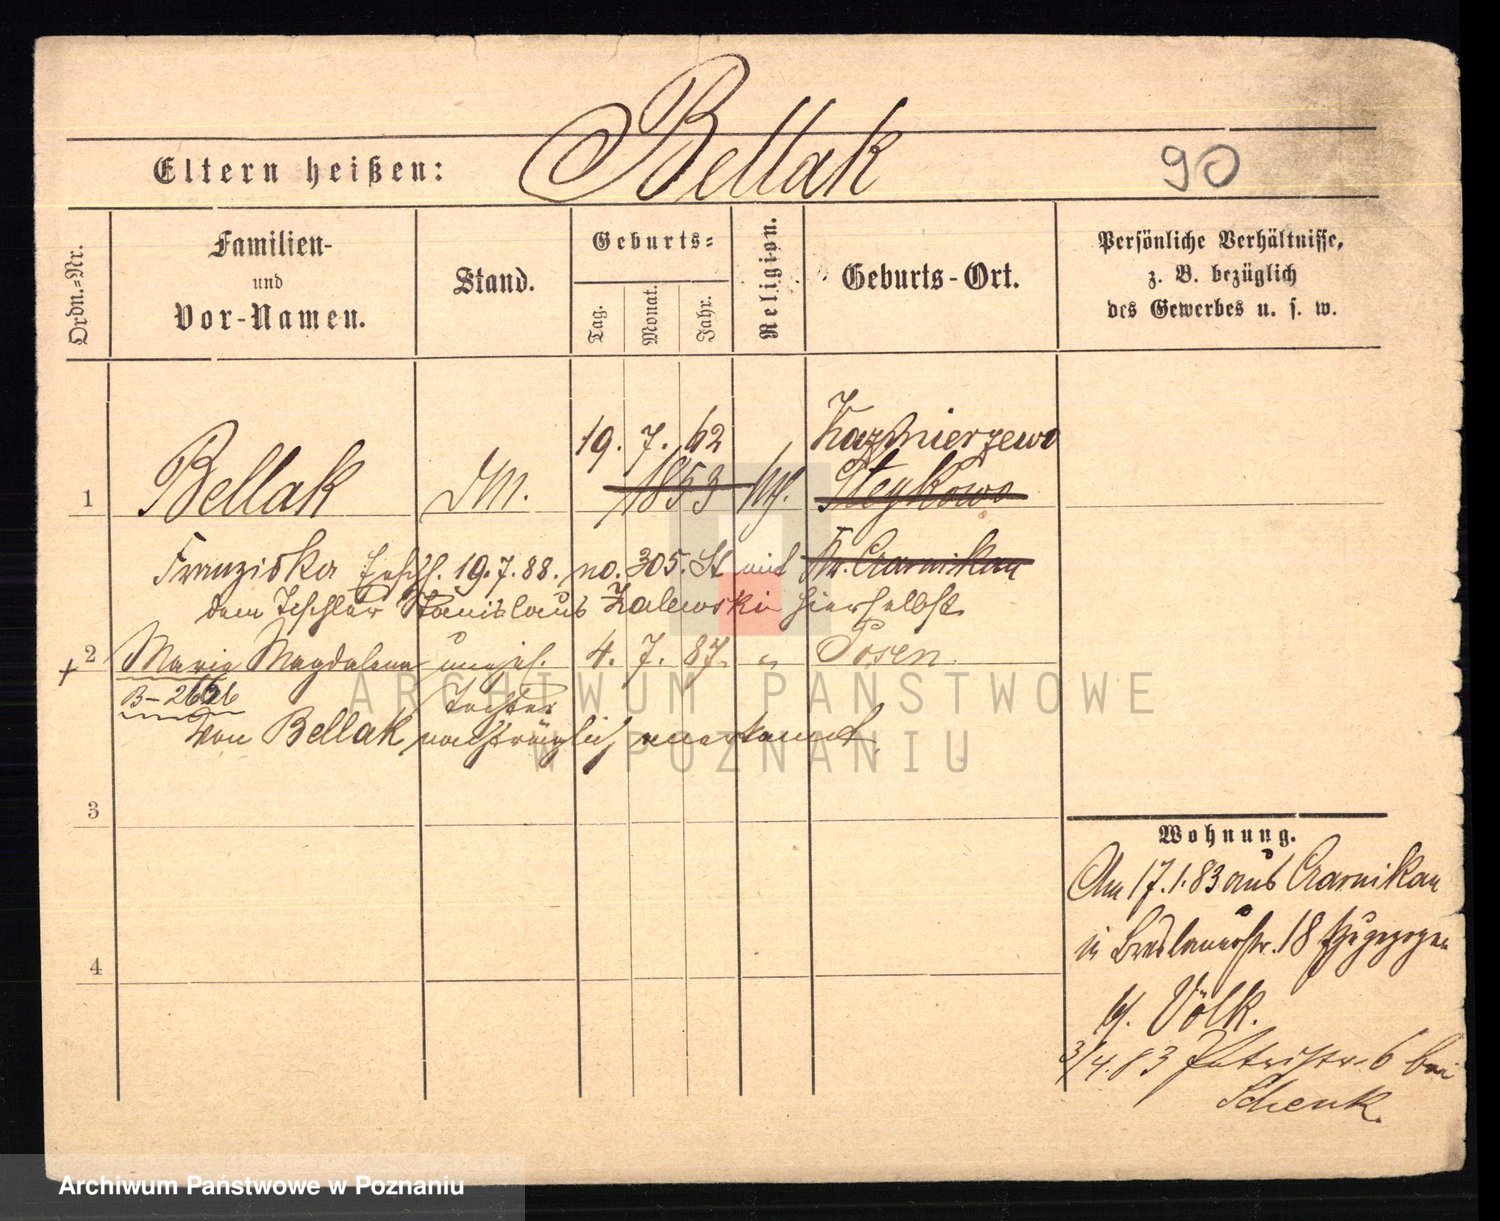 Bellak
Eltern heißen:
90
Ordn.-Nr.
Familien-
und
Vor-Namen.
Stand.
Geburts-
Tag.
Monat.
Jahr.
Religion.
Geburts-Ort.
Persönliche Verhältnisse,
z. B. bezüglich
des Gewerbes u. s. w.
19. 7. 62 Kazmierzewo
1 Bellak DM. 1853 kth. Steykowo
Franziska 19.7.88. no. 305. St mit Kr. Czarnikau
dem Tischler Stanislaus Zalewski hierselbst
+ 2 Maria Magdalena unehel. 4. 7. 87. " Posen.
B-2666 Tochter
von Bellak nachträglich anerkannt.
3
4
Wohnung.
Am 17.1.83 aus Czarnikau
in Breslauerstr. 18 zugezogen
bei Völk.
3/4.83 Petristr. 6 bei
Schenk.
ARCHIWUM PAŃSTWOWE
W POZNANIU
Archiwum Państwowe w Poznaniu